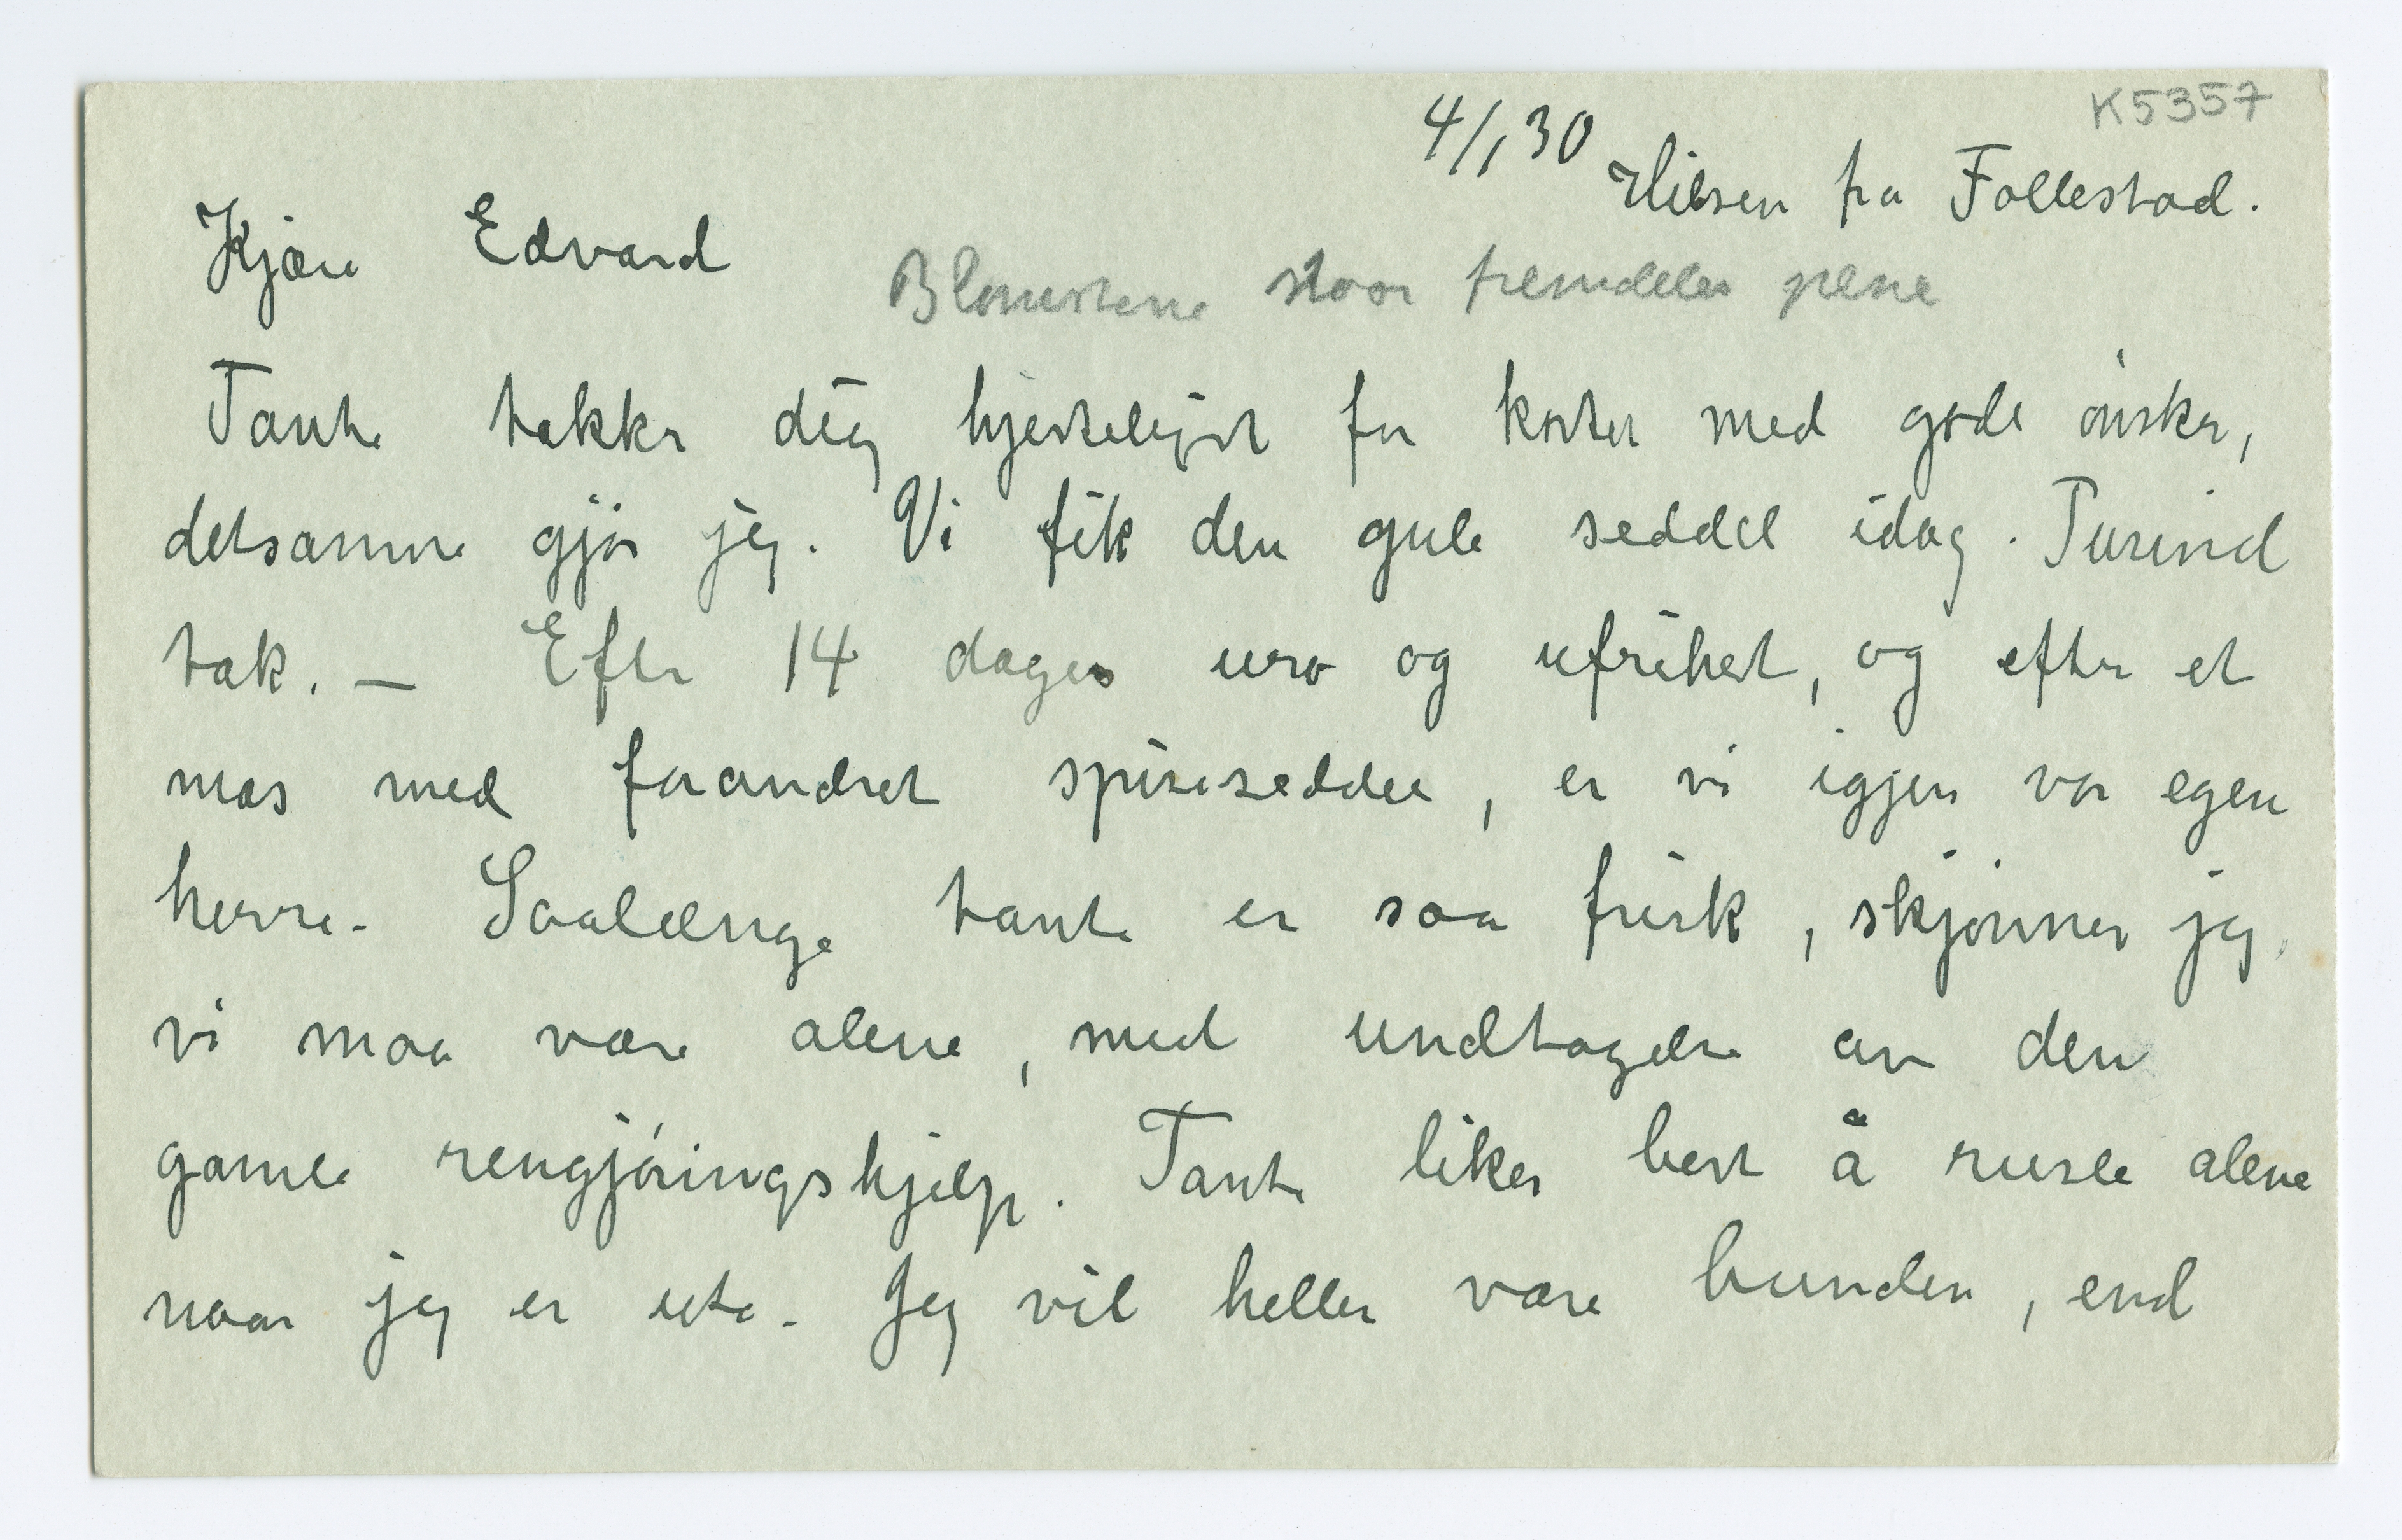 K5357
4/1 30
Hilsen fra Follestad.
Kjære Edvard
Blomsterne staar fremdeles pene
Tante takker dig hjerteligst for kortet med gode ønsker,
detsamme gjør jeg. Vi fik den gule seddel idag. Tusind
tak. — Efter 14 dages uro og ufrihet, og efter et
mas med forandret spiseseddel, er vi igjen vor egen
herre. Saalænge tante er saa frisk, skjønner jeg,
vi maa være alene, med undtagelse av den
gamle rengjøringshjelp. Tante liker best å rusle alene
naar jeg er ute. Jeg vil heller være bunden, end